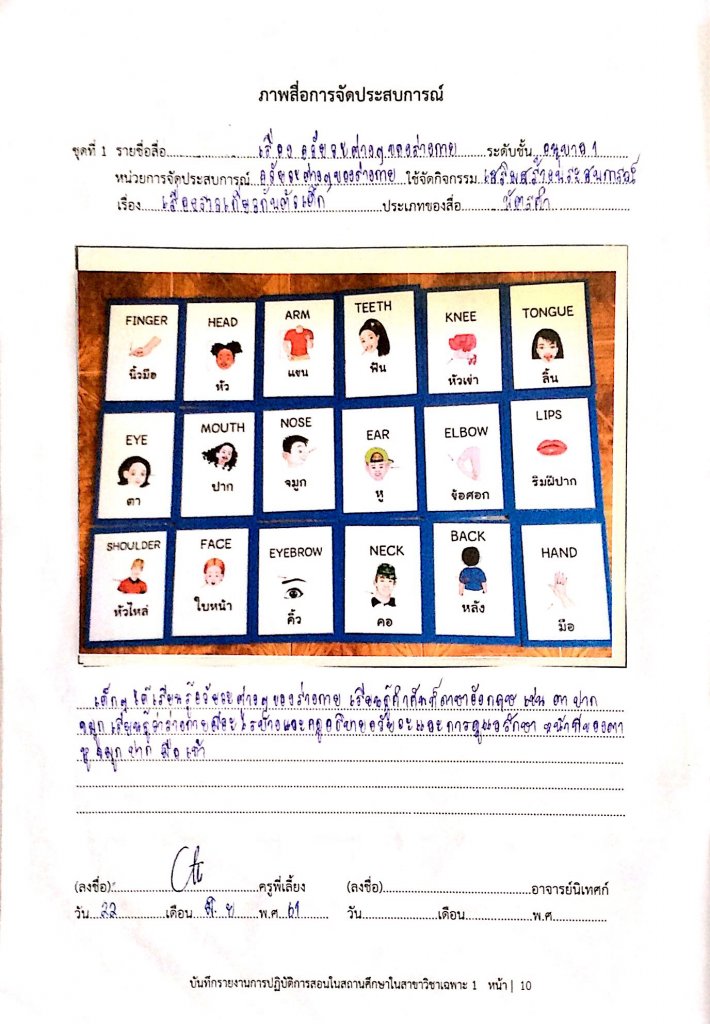 ภาพสื่อการจัดประสบการณ์
ชุดที่ 1 รายชื่อสื่อ เรื่อง อวัยวะต่างๆของร่างกาย ระดับชั้น อนุบาล 1
หน่วยการจัดประสบการณ์ อวัยวะต่างๆของร่างกาย ใช้จัดกิจกรรม เสริมสร้างประสบการณ์
เรื่อง เรื่องราวเกี่ยวกับตัวเด็ก ประเภทของสื่อ บัตรคำ
FINGER HEAD ARM TEETH KNEE TONGUE
นิ้วมือ หัว แขน ฟัน หัวเข่า ลิ้น
EYE MOUTH NOSE EAR ELBOW LIPS
ตา ปาก จมูก หู ข้อศอก ริมฝีปาก
SHOULDER FACE EYEBROW NECK BACK HAND
หัวไหล่ ใบหน้า คิ้ว คอ หลัง มือ
เด็กๆ ได้เรียนรู้อวัยวะต่างๆของร่างกาย เรียนรู้คำศัพท์ภาษาอังกฤษ เช่น ตา ปาก
จมูก เรียนรู้ว่าร่างกายมีอะไรบ้างและครูอธิบายอวัยวะและการดูแลรักษา หน้าที่ของตา
หู จมูก ปาก มือ เท้า
(ลงชื่อ) ครูพี่เลี้ยง (ลงชื่อ) อาจารย์นิเทศก์
วัน 22 เดือน มิ.ย พ.ศ 61 วัน เดือน พ.ศ
บันทึกรายงานการปฏิบัติการสอนในสถานศึกษาในสาขาวิชาเฉพาะ 1 หน้า | 10